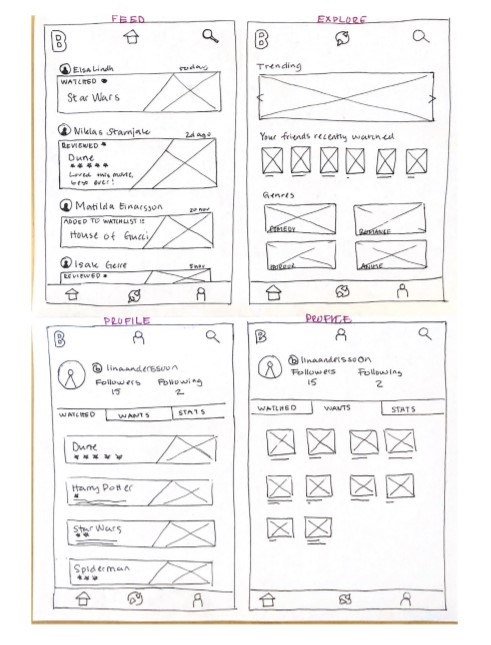 FEED
B
Elsa Lindh today
WATCHED
Star Wars
Niklas Stamjale 2d ago
REVIEWED
Dune
*****
Loved this movie,
best ever!
Matilda Einarsson 20 nov
ADDED TO WATCHLIST
House of Gucci
Isak Gerre
REVIEWED
EXPLORE
B
Trending
Your friends recently watched
Genres
COMEDY ROMANCE
HORROR ANIME
PROFILE
B
linaanderssoon
Followers Following
15 2
WATCHED WANTS STATS
Dune
*****
Harry Potter
*
Star Wars
**
Spiderman
***
PROFILE
B
linaanderssoon
Followers Following
15 2
WATCHED WANTS STATS